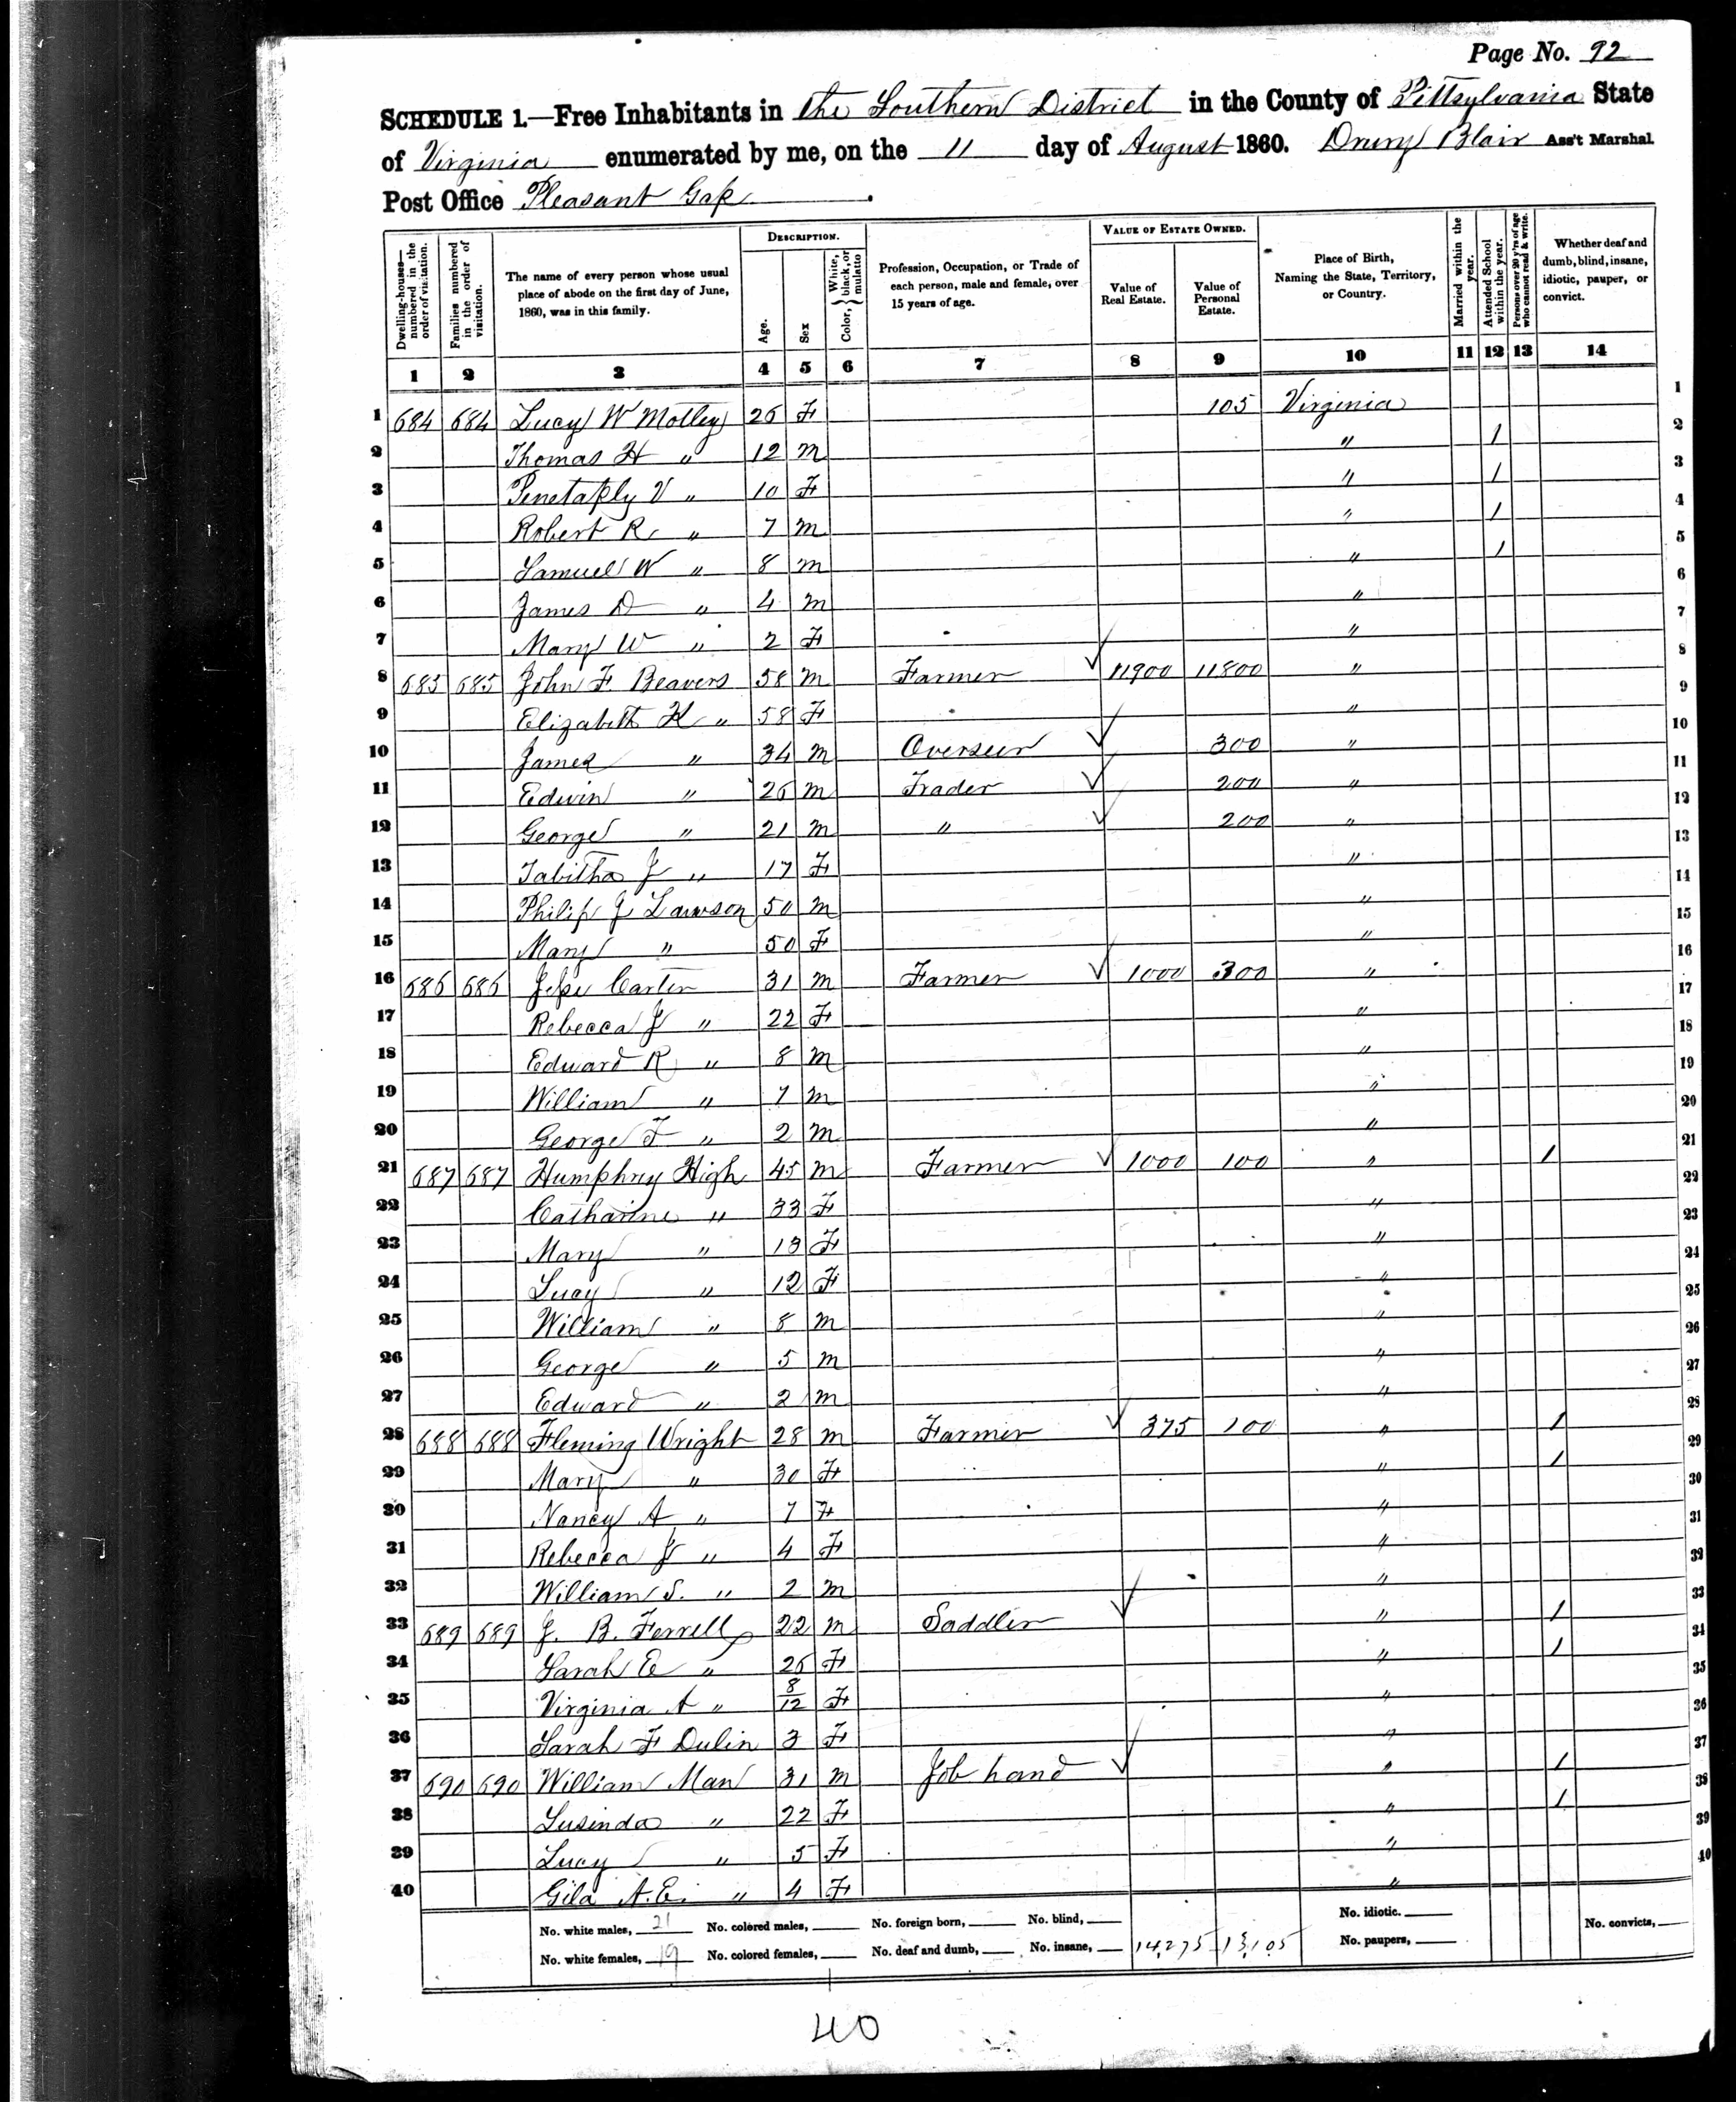 Page No. 92
SCHEDULE 1.—Free Inhabitants in the Southern District in the County of Pittsylvania State
of Virginia enumerated by me, on the 11 day of August 1860. Drury Blair Ass't Marshal.
Post Office Pleasant Gap.
Dwelling-houses—numbered in the order of visitation. Families numbered in the order of visitation. The name of every person whose usual place of abode on the first day of June, 1860, was in this family. DESCRIPTION. Age. Sex Color, White, black, or mulatto Profession, Occupation, or Trade of each person, male and female, over 15 years of age. VALUE OF ESTATE OWNED. Value of Real Estate. Value of Personal Estate. Place of Birth, Naming the State, Territory, or Country. Married within the year. Attended School within the year. Persons over 20 y'rs of age who cannot read & write. Whether deaf and dumb, blind, insane, idiotic, pauper, or convict.
1 2 3 4 5 6 7 8 9 10 11 12 13 14
1 684 684 Lucy W Motley 26 F 105 Virginia 1
2 Thomas H " 12 M " 1 2
3 Penetaply V " 10 F " 1 3
4 Robert R " 7 M " 1 4
5 Samuel W " 8 M " 1 5
6 James D " 4 M " 6
7 Mary W " 2 F " 7
8 685 685 John F. Beavers 58 M Farmer ✓ 11900 11800 " 8
9 Elizabeth K " 58 F " 9
10 James " 34 M Overseer ✓ 300 " 10
11 Edwin " 26 M Trader ✓ 200 " 11
12 George " 21 M " ✓ 200 " 12
13 Tabitha J " 17 F " 13
14 Philip J Lawson 50 M " 14
15 Mary " 50 F " 15
16 686 686 Jesse Carter 31 M Farmer ✓ 1000 300 " 16
17 Rebecca J " 22 F " 17
18 Edward R " 8 M " 18
19 William " 7 M " 19
20 George F " 2 M " 20
21 687 687 Humphrey High 45 M Farmer ✓ 1000 100 " 1 21
22 Catharine " 33 F " 22
23 Mary " 13 F " 23
24 Lucy " 12 F " 24
25 William " 8 M " 25
26 George " 5 M " 26
27 Edward " 2 M " 27
28 688 688 Fleming Wright 28 M Farmer ✓ 375 100 " 1 28
29 Mary " 30 F " 1 29
30 Nancy A " 7 F " 30
31 Rebecca J " 4 F " 31
32 William S. " 2 M " 32
33 689 689 J. B. Ferrell 22 M Saddler ✓ " 1 33
34 Sarah E " 26 F " 1 34
35 Virginia A " 8/12 F " 35
36 Sarah F Dulin 3 F " 36
37 690 690 William Man 31 M Job hand ✓ " 1 37
38 Lusinda " 22 F " 1 38
39 Lucy " 5 F " 39
40 Gila A. E. " 4 F " 40
No. white males, 21 No. colored males, No. foreign born, No. blind, No. idiotic. No. convicts,
No. white females, 19 No. colored females, No. deaf and dumb, No. insane, 14,275 13,105 No. paupers,
40